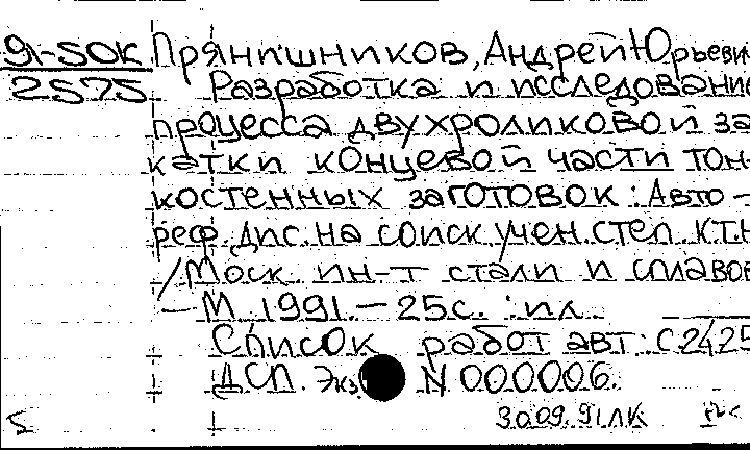 91-50К Прянишников, Андрей Юрьеви
2575 Разработка и исследование
процесса двухроликовой за
катки концевой части тон
костенных заготовок : Авто -
реф. дис. на соиск. учен. степ. к.т.н
/Моск. ин-т стали и сплавов
— М. 1991. — 25 с. : ил.
Список работ авт.: с 24, 25
ДСП. Экз. N 000006.
30.09.91 ЛК